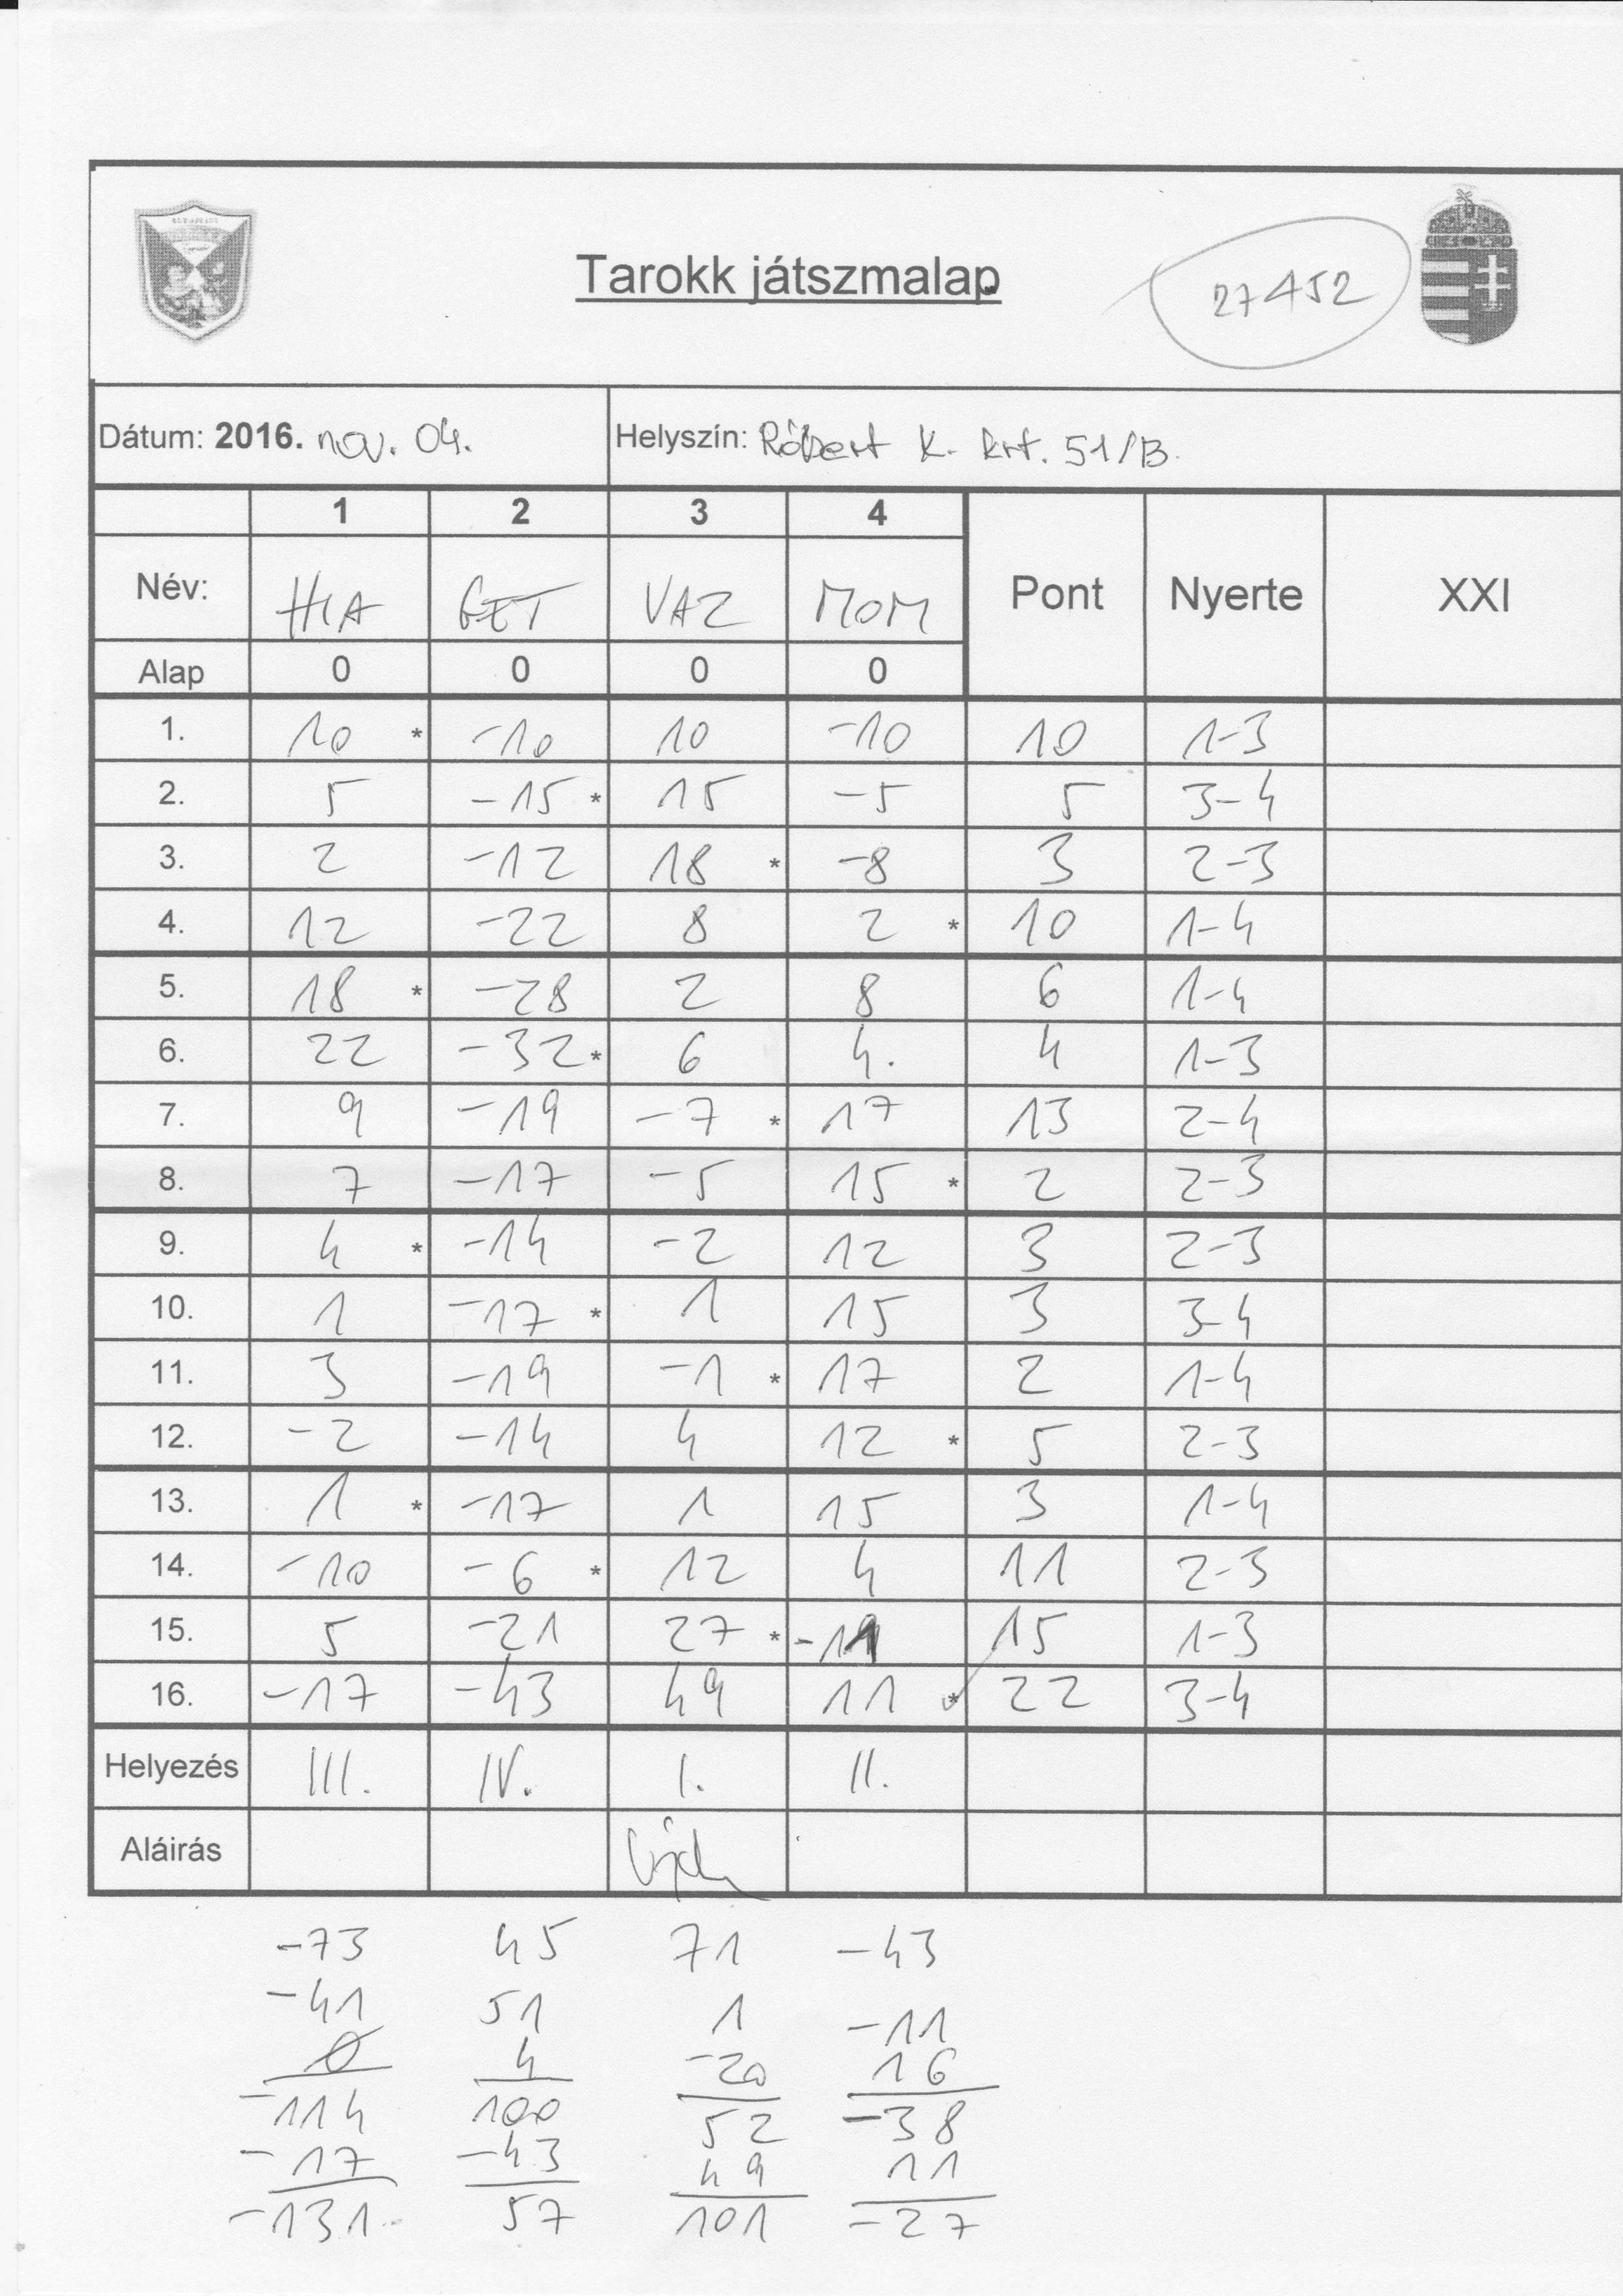 Tarokk játszmalap
27452
Dátum: 2016. nov. 04. Helyszín: Róbert K. krt. 51/B.
1 2 3 4 Pont Nyerte XXI
Név: HIA GET VAZ MOM
Alap 0 0 0 0
1. 10 * -10 10 -10 10 1-3
2. 5 -15 * 15 -5 5 3-4
3. 2 -12 18 * -8 3 2-3
4. 12 -22 8 2 * 10 1-4
5. 18 * -28 2 8 6 1-4
6. 22 -32 * 6 4. 4 1-3
7. 9 -19 -7 * 17 13 2-4
8. 7 -17 -5 15 * 2 2-3
9. 4 * -14 -2 12 3 2-3
10. 1 -17 * 1 15 3 3-4
11. 3 -19 -1 * 17 2 1-4
12. -2 -14 4 12 * 5 2-3
13. 1 * -17 1 15 3 1-4
14. -10 -6 * 12 4 11 2-3
15. 5 -21 27 * -11 15 1-3
16. -17 -43 49 11 * 22 3-4
Helyezés III. IV. I. II.
Aláirás
-73 45 71 -43
-41 51 1 -11
0 4 -20 16
-114 100 52 -38
-17 -43 49 11
-131 57 101 -27